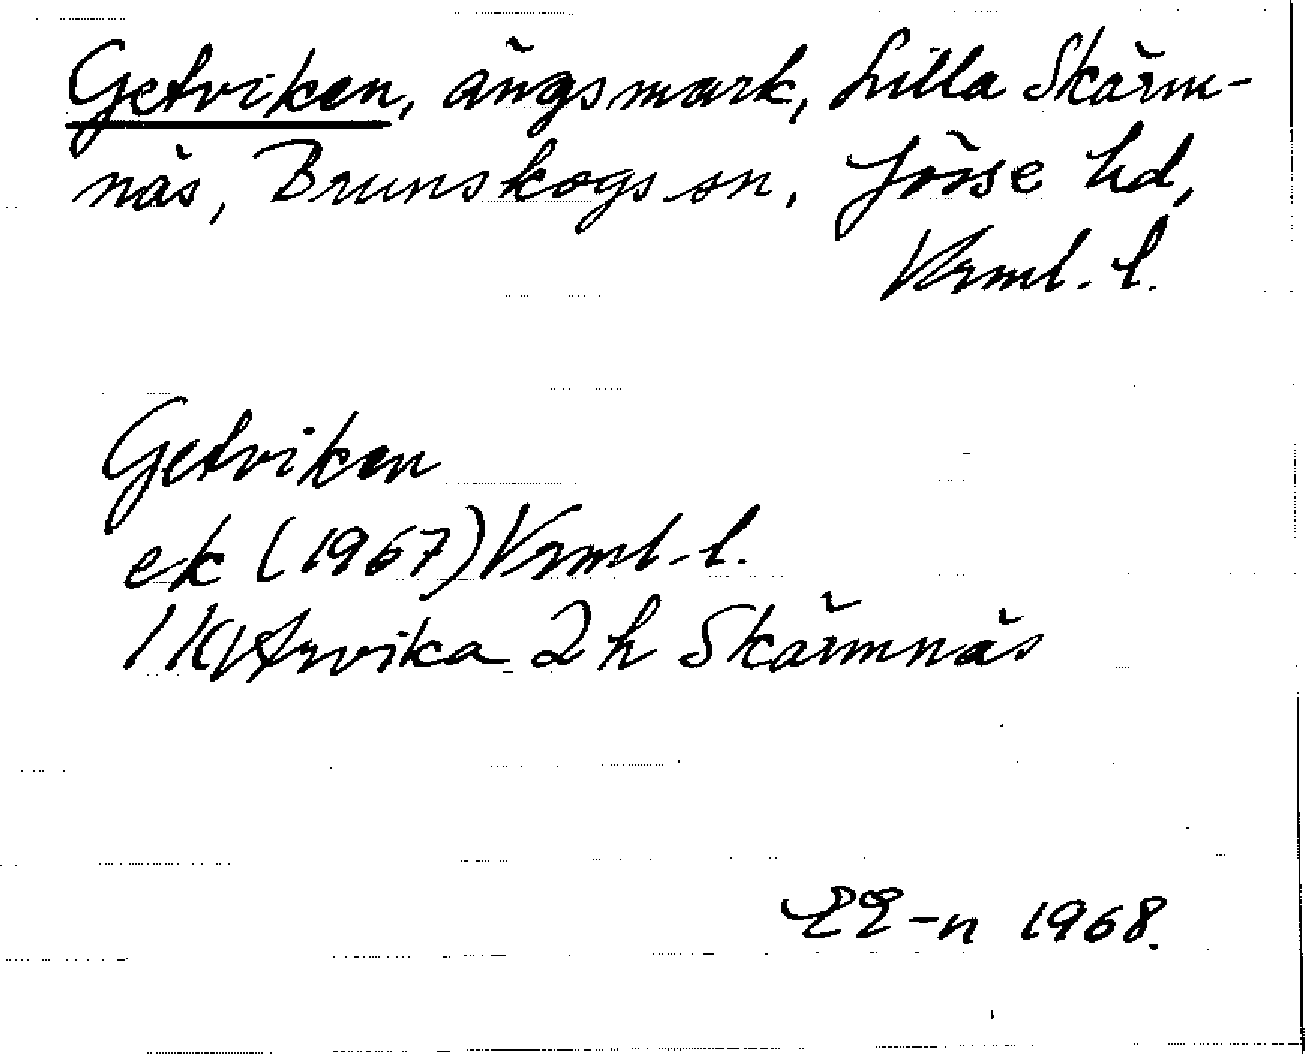 Getviken, ängsmark, Lilla Skärm-
näs, Brunskogs sn, Jösse hd,
Vrml. l.
Getviken
ek (1967) Vrml. l.
Arvika 2 h Skärmnäs
-n 1968.